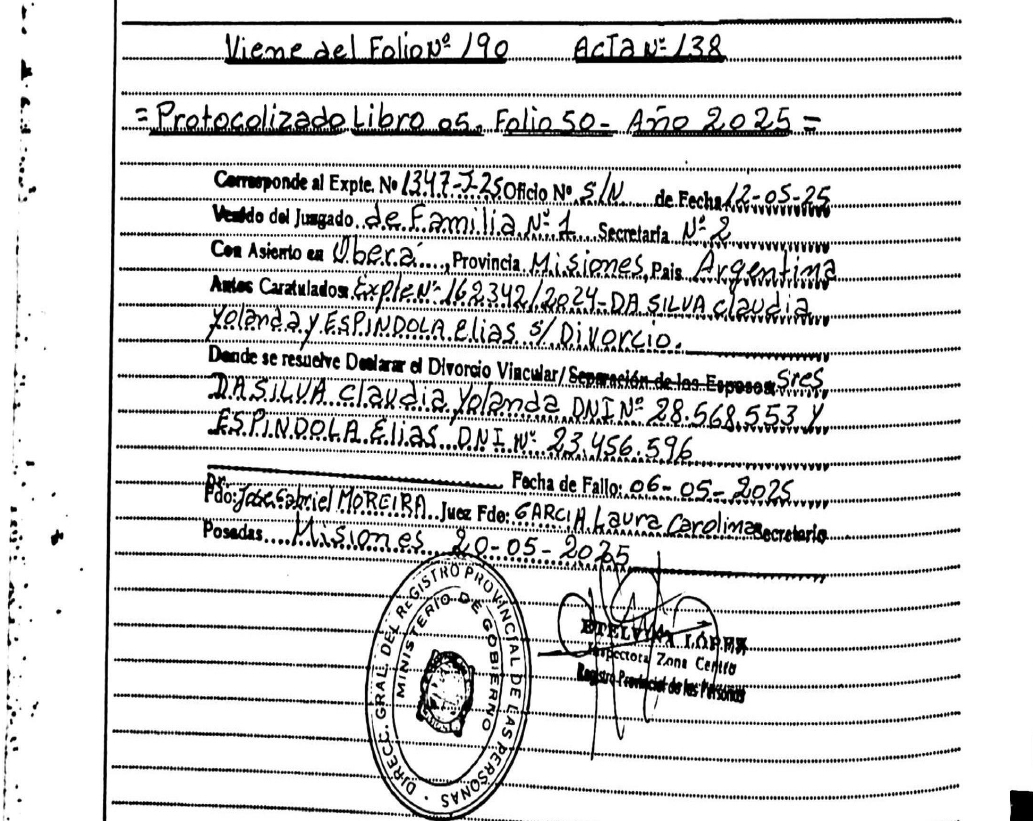 Viene del Folio Nº 190 Acta Nº 138
= Protocolizado Libro 05. Folio 50 - Año 2025 =
Corresponde al Expte. Nº 1347-J-25 Oficio Nº S/N de Fecha 12-05-25
Venido del Juzgado de Familia Nº 1 Secretaría Nº 2
Con Asiento en Oberá, Provincia Misiones, País Argentina
Autos Caratulados: Expte Nº 162342/2024-DA SILVA Claudia
Yolanda y ESPINDOLA Elias s/ Divorcio.
Donde se resuelve Declarar el Divorcio Vincular/ Separación de los Esposos: Sres
DA SILVA Claudia Yolanda DNI Nº 28.568.553 y
ESPINDOLA Elias DNI Nº 23.456.596
Fecha de Fallo: 06-05-2025
Dr.
Fdo: José Gabriel MOREIRA Juez Fdo: GARCIA Laura Carolina Secretario
Posadas Misiones 20-05-2025
DIRECC. GRAL. DEL REGISTRO PROVINCIAL DE LAS PERSONAS
MINISTERIO DE GOBIERNO
ETELVINA LOPEZ
Inspectora Zona Centro
Registro Provincial de las Personas